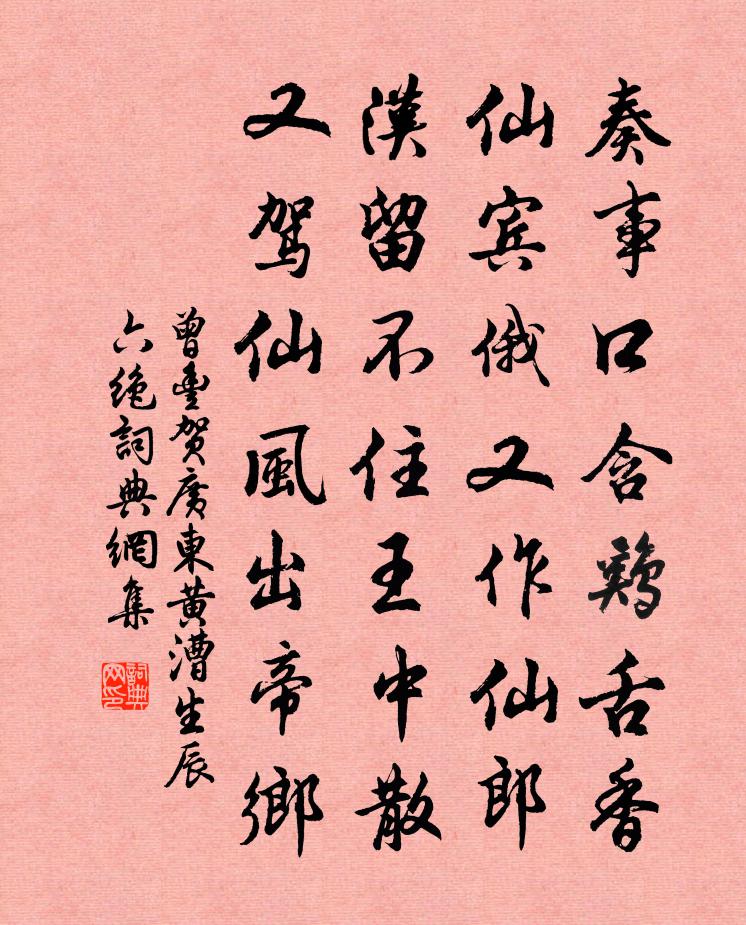 奏事口含鷄舌香
仙宾俄又作仙郎
漢留不住王中散
又駕仙風出帝鄉
曾豐贺廣東黄漕生辰
六绝詞典網集
詞典网印